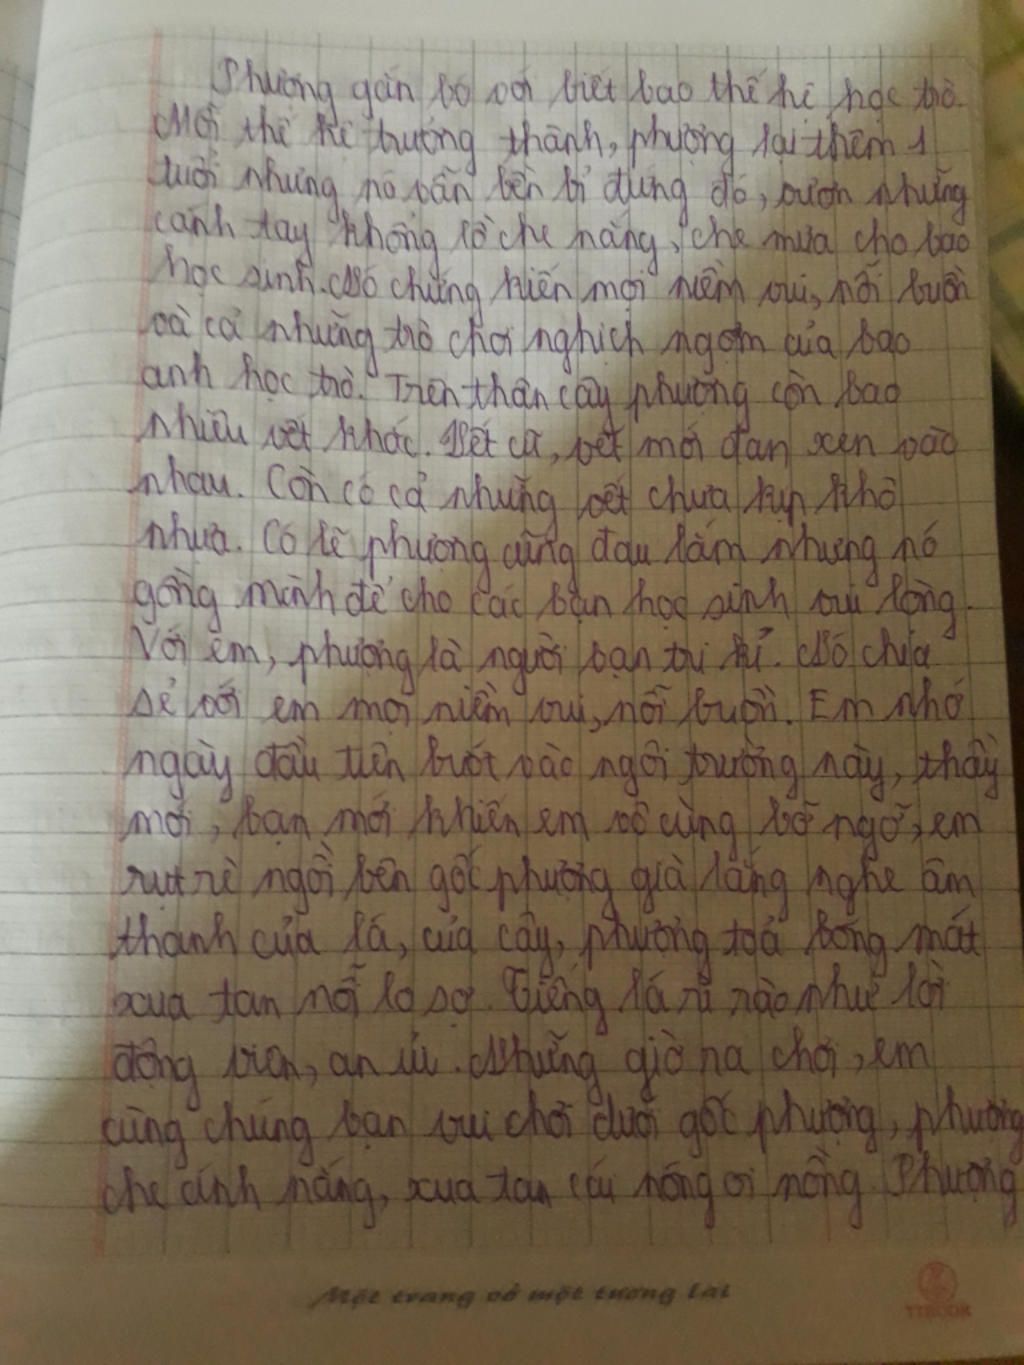 Phượng gắn bó với biết bao thế hệ học trò.
Mỗi thế hệ trưởng thành, phượng lại thêm 1
tuổi nhưng nó vẫn bền bỉ đứng đó, vươn những
cánh tay khổng lồ che nắng, che mưa cho bao
học sinh. Nó chứng kiến mọi niềm vui, nỗi buồn
và cả những trò chơi nghịch ngợm của bao
anh học trò. Trên thân cây phượng còn bao
nhiêu vết khắc. Vết cũ, vết mới đan xen vào
nhau. Còn có cả những vết chưa kịp khô
nhựa. Có lẽ phượng cũng đau lắm nhưng nó
gồng mình để cho các bạn học sinh vui lòng.
Với em, phượng là người bạn tri kỉ. Nó chia
sẻ với em mọi niềm vui, nỗi buồn. Em nhớ
ngày đầu tiên bước vào ngôi trường này, thầy
mới, bạn mới khiến em vô cùng bỡ ngỡ, em
rụt rè ngồi bên gốc phượng già lắng nghe âm
thanh của lá, của cây, phượng toả bóng mát
xua tan nỗi lo sợ. Tiếng lá rì rào như lời
động viên, an ủi. Những giờ ra chơi, em
cùng chúng bạn vui chơi dưới gốc phượng, phượng
che ánh nắng, xua tan cái nóng oi nồng. Phượng
Một trang vở một tương lai
TTBOOK